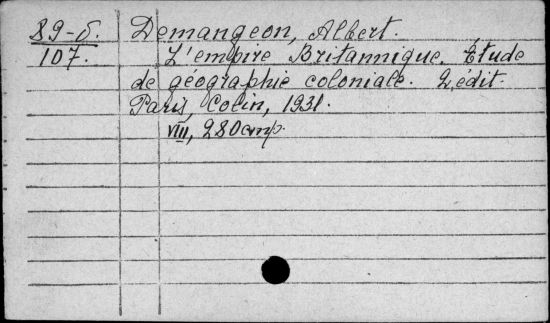 89-б. Demangeon, Albert.
107. L'empire Britannique. Étude
de géographie coloniale. 2 édit.
Paris, Colin, 1931.
VIII, 280 стр.